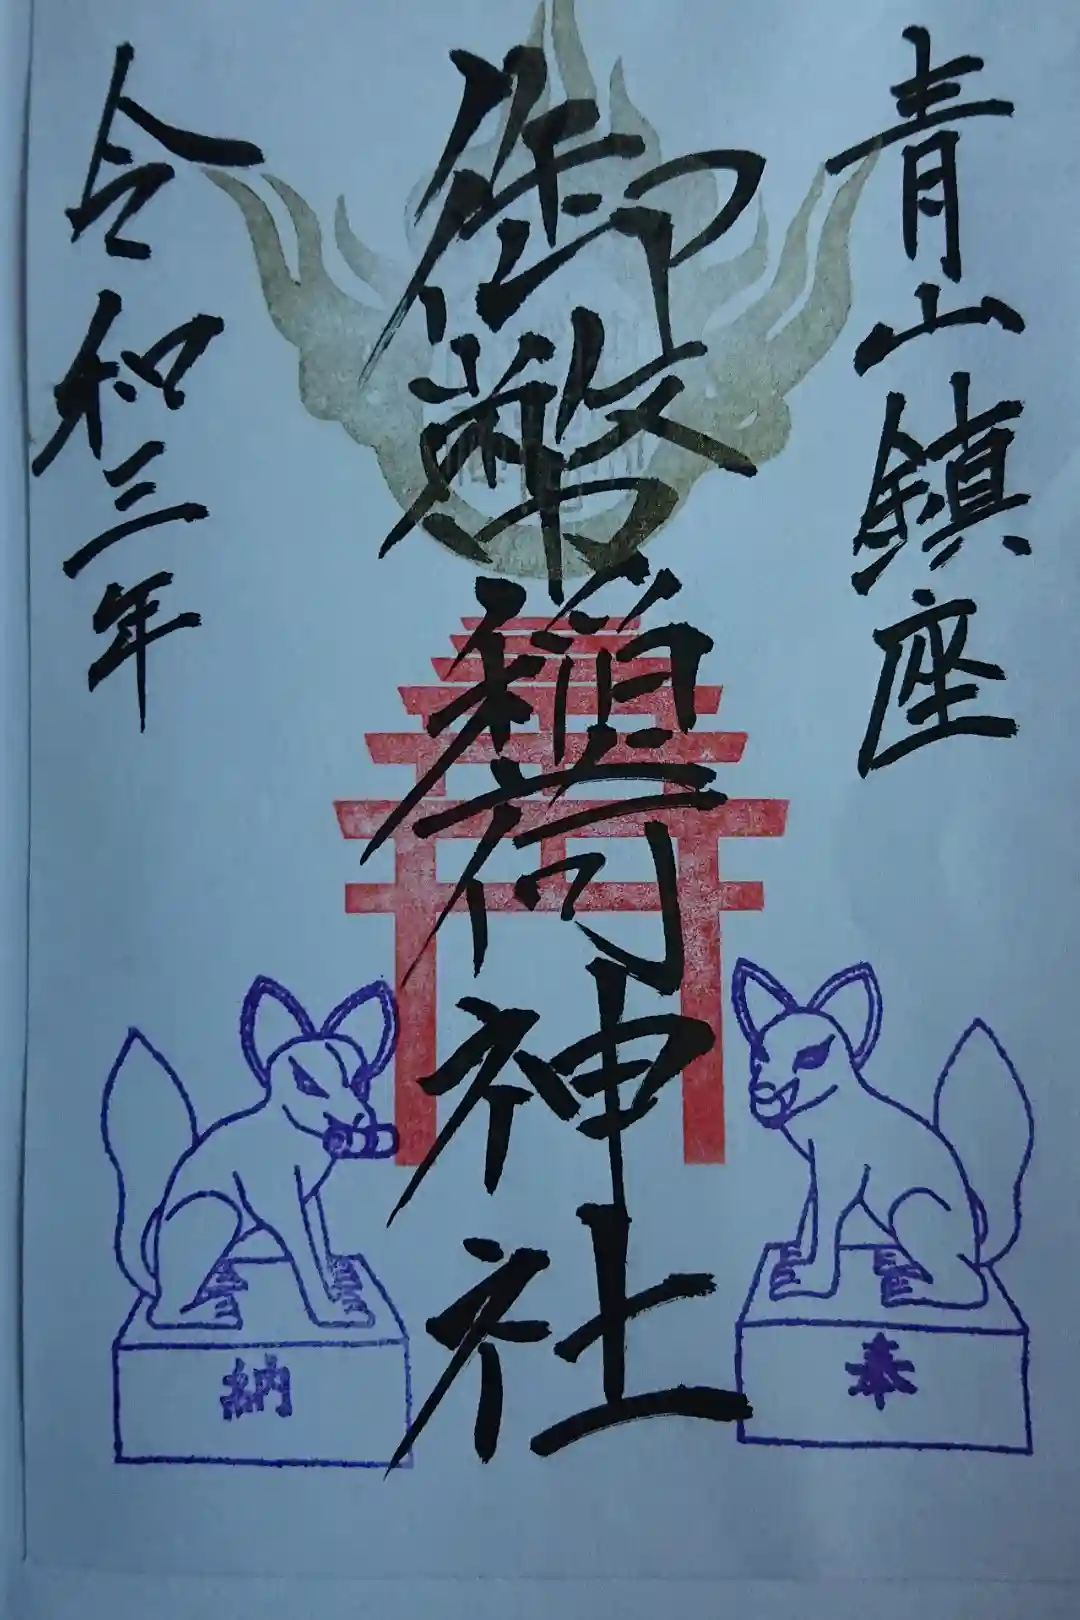 青山鎮座
御幣稲荷神社
令和三年
奉
納